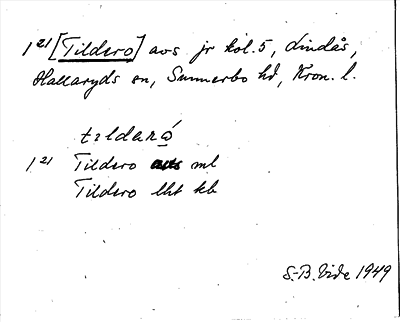 1²¹ [Tildero] avs jr kol. 5, Lindås,
Hallaryds sn, Sunnerbo hd, Kron. l.
tıldarò
1²¹ Tildero avs ml
Tildero lht kb
S.-B. Vide 1949